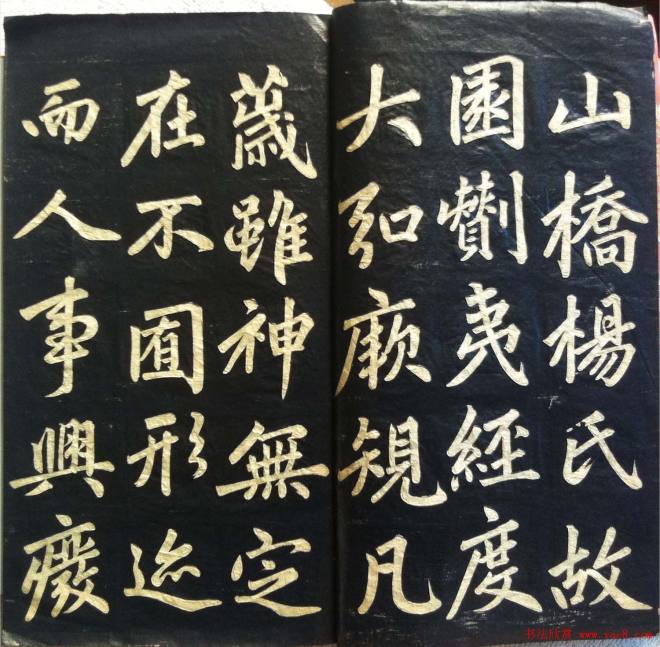 山橋楊氏故
園劗夷經度
大弘厥規凡
蕆雖神無定
在不囿形迹
而人事興廢
书法欣赏 www.yac8.com